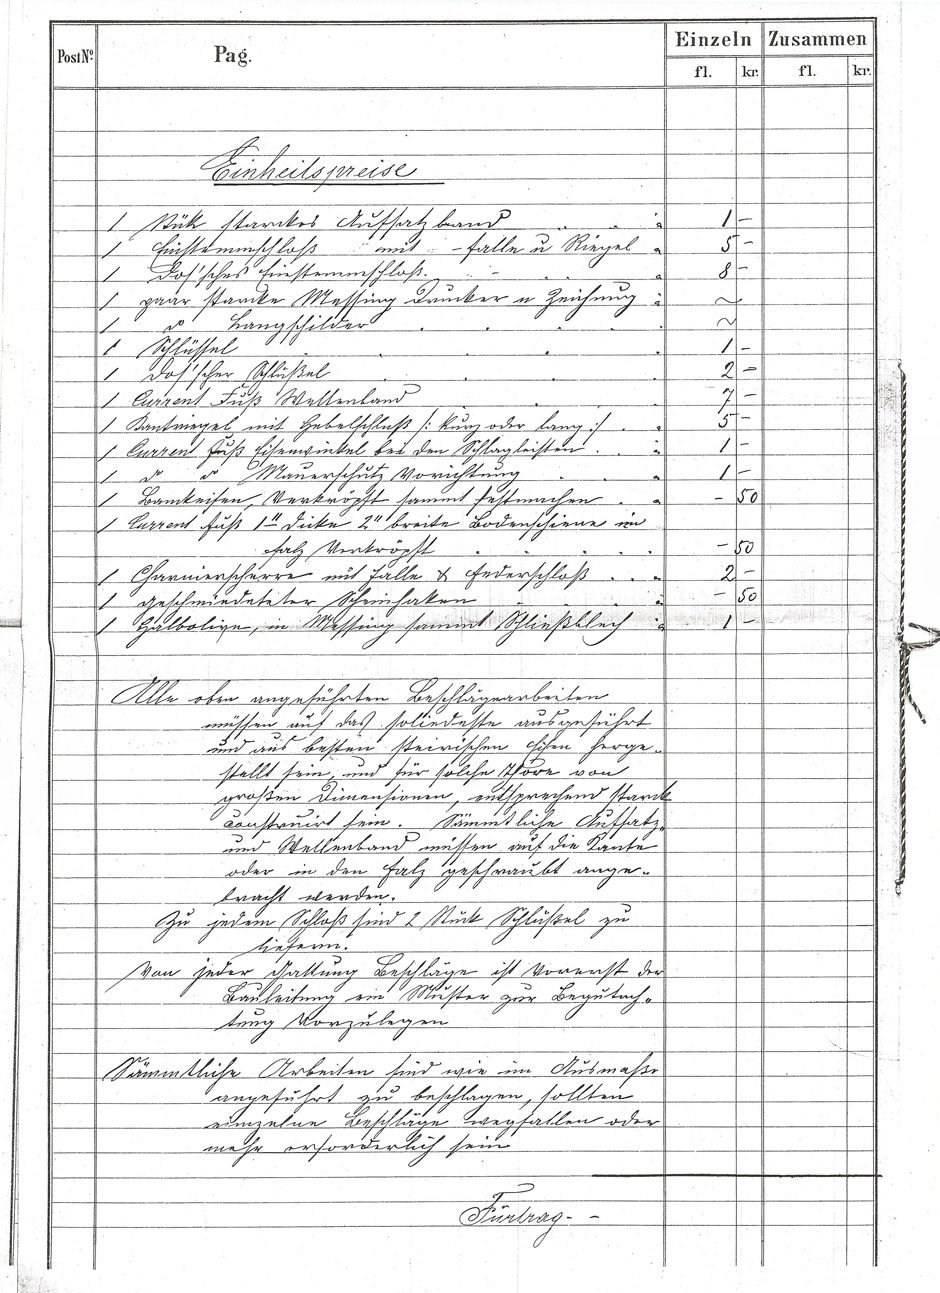 Post Nº Pag. Einzeln Zusammen
fl. kr. fl. kr.
Einheitspreise
1 Stük starckes Aufsatzband . . . à 1 –
1 Einstemmschloß mit – falle u Riegel à 5 –
1 Dos'sches Einstemmschloß. . . à 8 –
1 paar starcke Messing Drucker n Zeichnung à ~
1 dº Langschilder . . . . ~
1 Schlüssel . . . . 1 –
1 Dos'scher Schlüßel . . . 2 –
1 Current Fuß Wellenband . . . 7 –
1 Kantriegel mit Hebelschluß /: kurz oder lang :/ . . 5 –
1 Current Fuß Eisenwinkel bei den Schlagleisten . . à 1 –
1 dº dº Mauerschutz Vorichtung . . à 1 –
1 Bankeisen, Verkröpft sammt festmachen . à – 50
1 Current Fuß 1" dicke 2" breite Bodenschiene im
falz Verkröpft . . . . . – 50
1 Charniersperre mit Falle & Federschloß . . . 2 –
1 geschmiedeteter Scheinhaken . . . à – 50
1 Halbolive, in Messing sammt Schließblech à 1 –
Alle oben angeführten Beschlägearbeiten
müssen auf das solideste ausgeführt
und aus besten steirischen Eisen herge-
stellt sein, und für solche Thore von
großen Dimensionen, entsprechend starck
construirt sein. Sämmtliche Aufsatz-
und Wellenband müssen auf die Kante
oder in den Falz geschraubt ange-
bracht werden.
Zu jedem Schloß sind 2 Stück Schlüßel zu
liefern.
Von jeder Gattung Beschläge ist vorerst der
Bauleitung ein Muster zur Begutach-
tung Vorzulegen
Sämmtliche Arbeiten sind wie im Ausmaße
angeführt zu beschlagen, sollten
einzelne Beschläge wegfallen oder
mehr erforderlich sein
Fürtrag – –